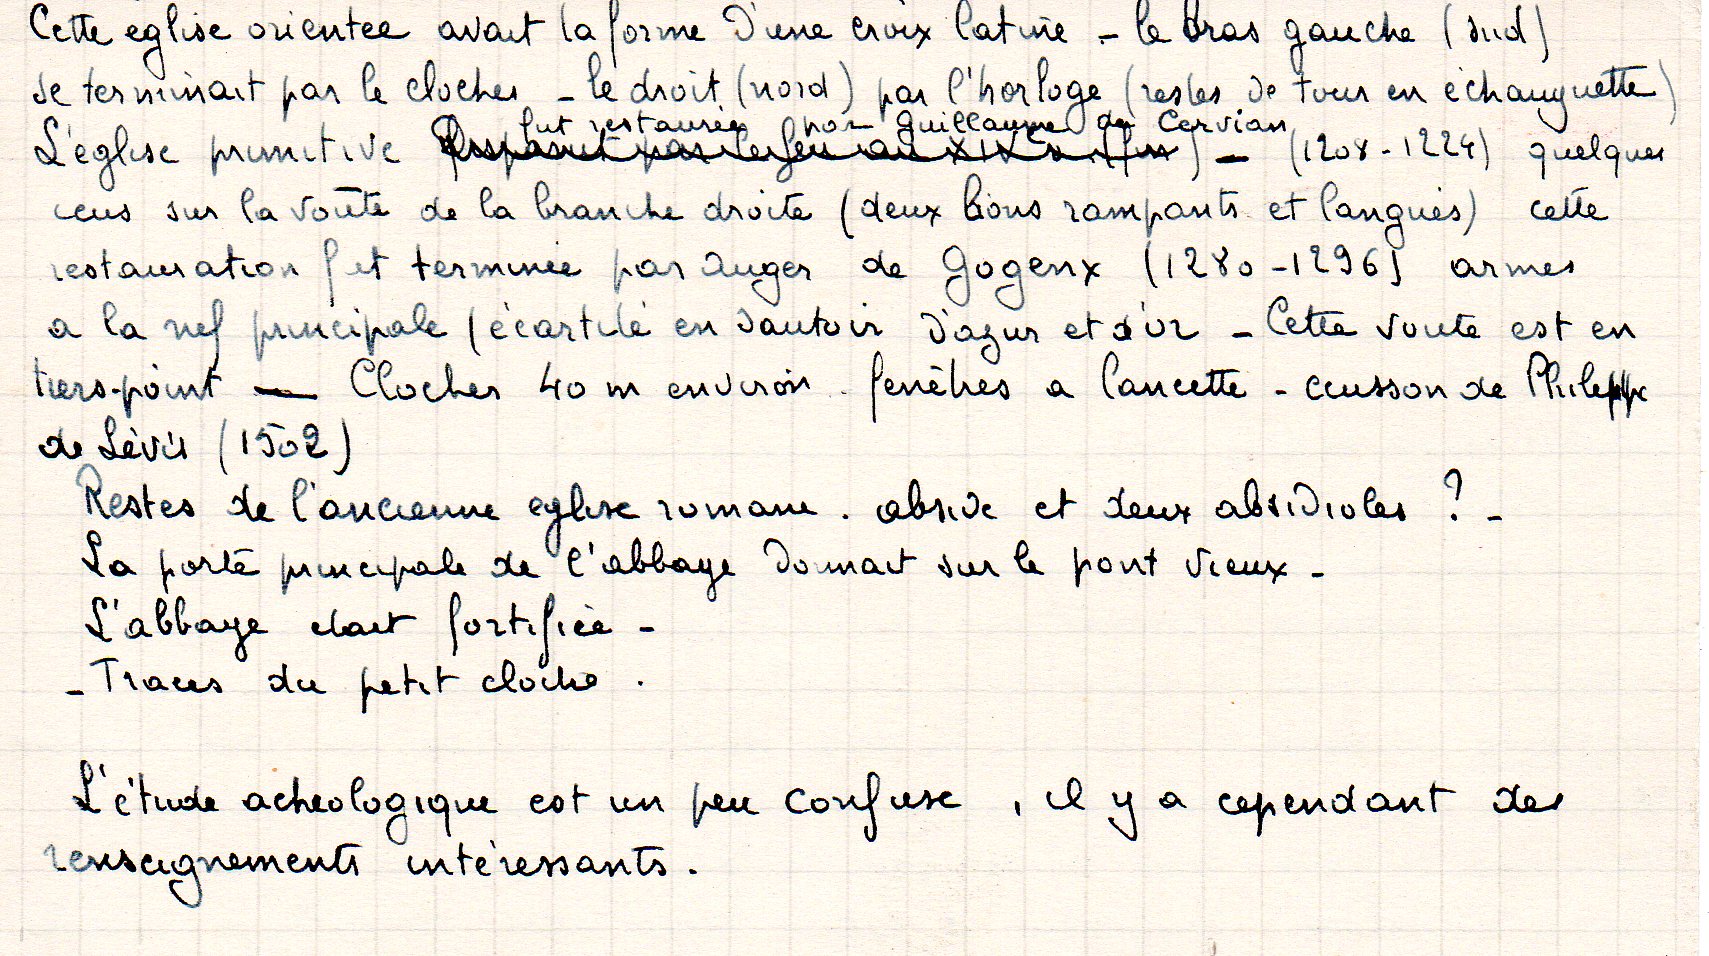 Cette église orientée avait la forme d'une croix latine - le bras gauche (sud)
se terminait par le clocher - le droit (nord) par l'horloge (restes de tour en échauguette)
fut restaurée par Guillaume de Cervian
L'église primitive disparut par le feu au XIXe s. (fin) - (1208-1224) quelques
ecus sur la voûte de la branche droite (deux lions rampants et langués) cette
restauration fut terminée par Auger de Gogenx (1280-1296) armes
a la nef principale (écartelé en sautoir d'azur et d'or - Cette voute est en
tiers-point - Clocher 40 m environ. fenêtres a lancette - ecusson de Philippe
de Lévis (1502)
Restes de l'ancienne eglise romane. abside et deux absidioles ? -
La porte principale de l'abbaye donnait sur le pont vieux -
L'abbaye etait fortifiée -
- Traces du petit cloche.
L'étude acheologique est un peu confuse, il y a cependant des
renseignements intéressants.